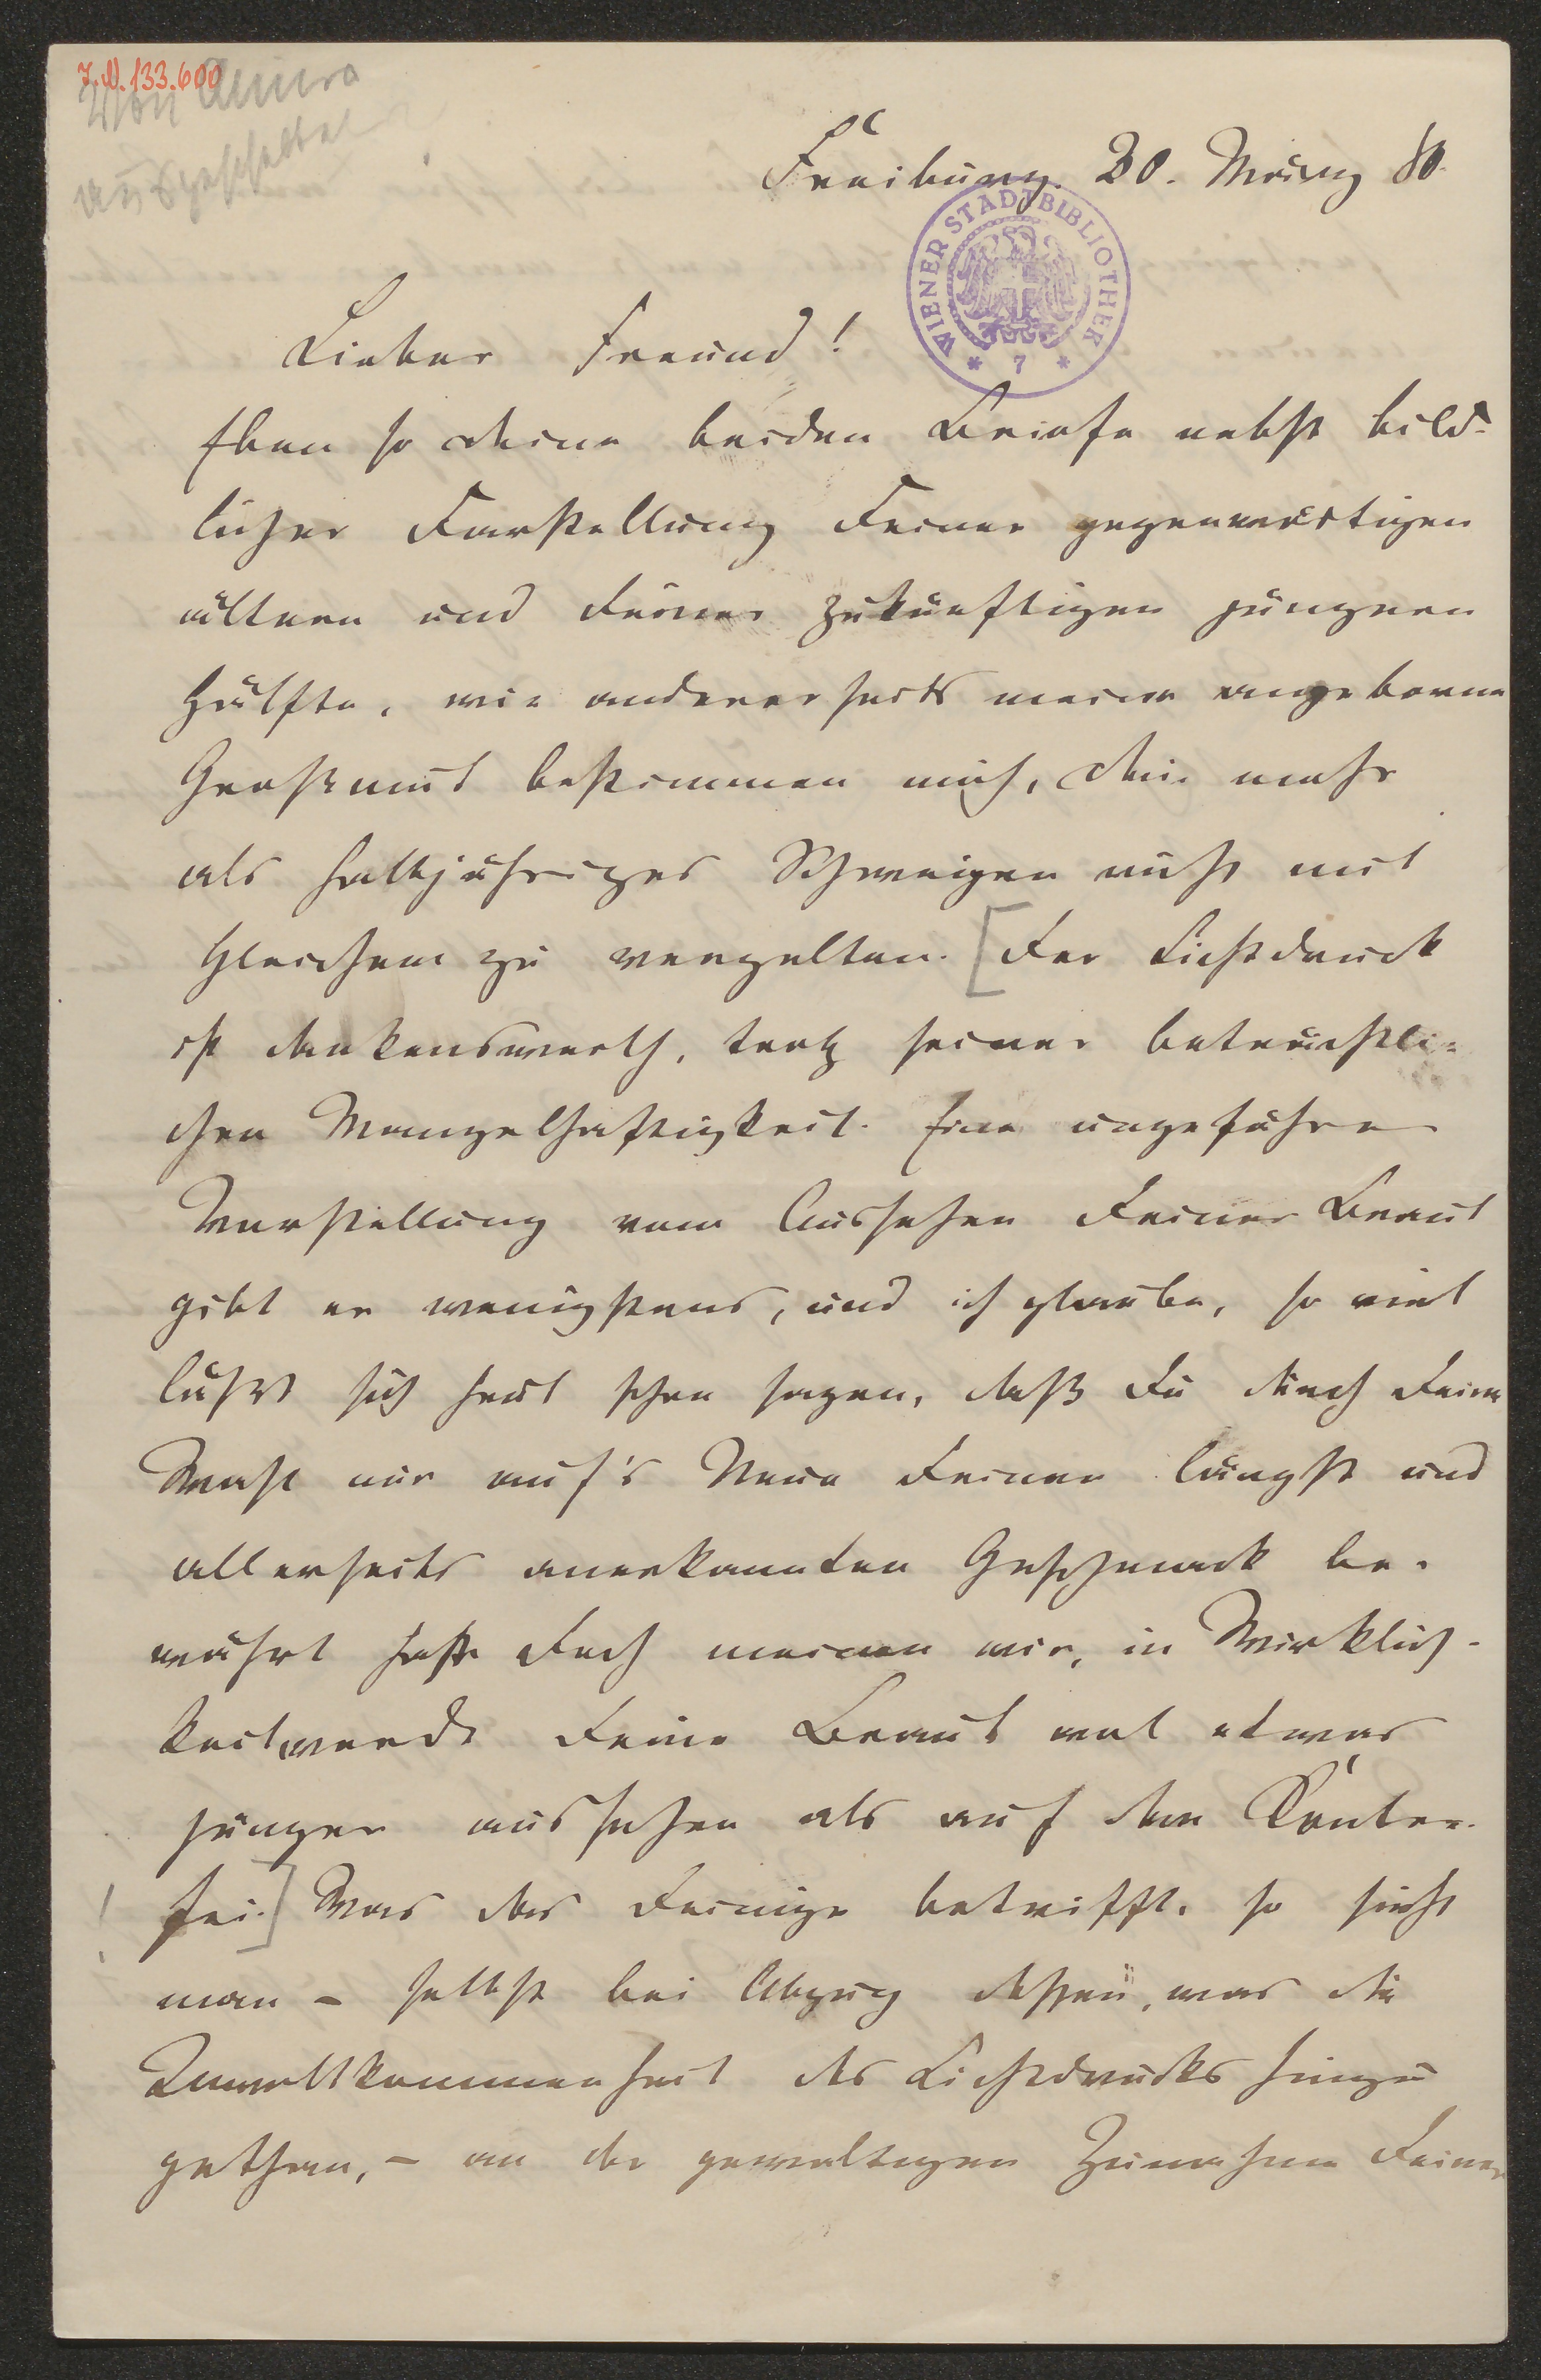 I.N. 133.600
Von Amira
ausgeschaltet
Freiburg. 20. März 80.
WIENER STADTBIBLIOTHEK
* 7 *
Lieber Freund!
Eben so deine beiden Briefe nebst bild-
licher Darstellung Deiner gegenwärtigen
ältern und Deiner zukünftigen jüngern
Hälfte, wie andererseits meine angeborne
Großmut bestimmen mich, dein mehr
als halbjähriges Schweigen nicht mit
Gleichem zu vergelten. [Der Lichtdruck
ist dankenswerth, trotz seiner beträchtli-
chen Mangelhaftigkeit. Eine ungefähre
Vorstellung vom Aussehen Deiner Braut
gibt er wenigstens, und ich glaube, so viel
läßt sich heut schon sagen, daß Du durch Deine
Wahl nur auf's Neue Deinen längst und
allerseits anerkannten Geschmack be-
währt hast. Doch meinen wir, in Wirklich-
keit werde Deine Braut wol etwas
jünger aussehen als auf dem Conter-
fei.] Was das Deinige betrifft, so sieht
man – selbst bei Abzug dessen, was die
Unvollkommenheit des Lichtdrucks hinzu
gethan, – an der gewaltigen Zunahme Deiner